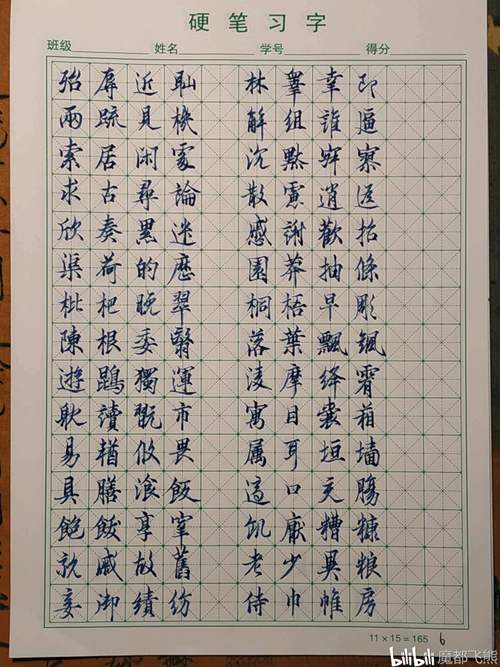 硬笔习字
班级 姓名 学号 得分
殆辱近耻 林皋幸即
兩踈見機 解組誰逼
索居闲處 沉默寂寥
求古尋論 散慮逍遥
欣奏累遣 慼謝歡招
渠荷的歷 園莽抽條
枇杷晚翠 桐梧早彫
陳根委翳 落葉飄飖
遊鵾獨運 凌摩絳霄
耽讀翫市 寓目囊箱
易輶攸畏 属耳垣墙
具膳湌飯 適口充腸
飽飫享宰 飢厭糟糠
親戚故舊 老少異粮
妾御績紡 侍巾帷房
11×15=165 6
bilibili 魔都飞熊